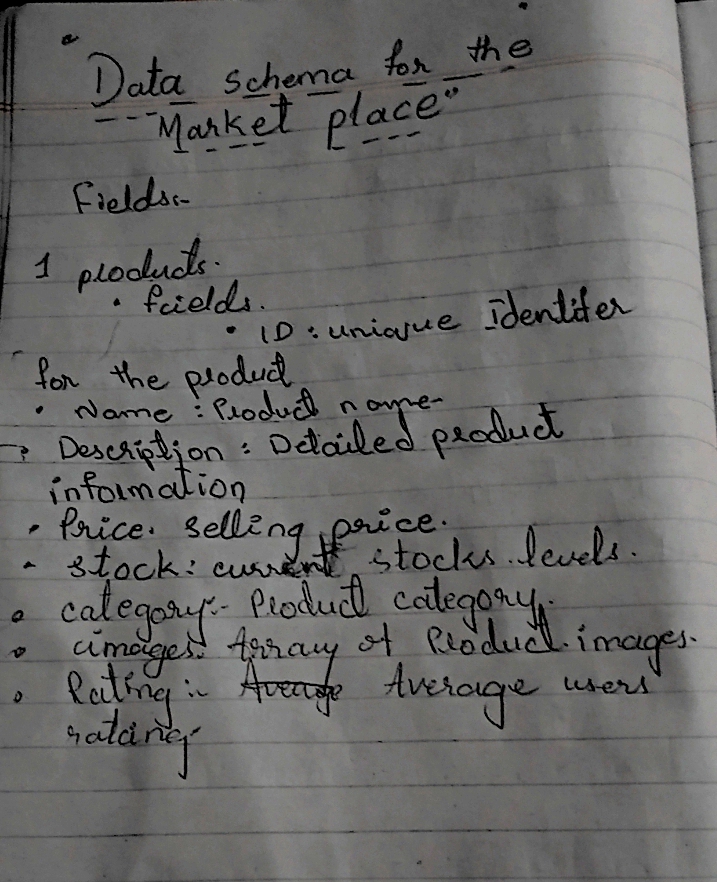 "Data schema for the
Market place"
Fields:-
1 products.
• faields.
• ID : uniaque Identifer
for the product
• Name : Product name
→ Description : Detailed product
information
• Price. selling price.
- stock : current stocks. levels.
• category:- Product category.
• images: Array of Product. images.
• Rating :- Average Average users
rataing